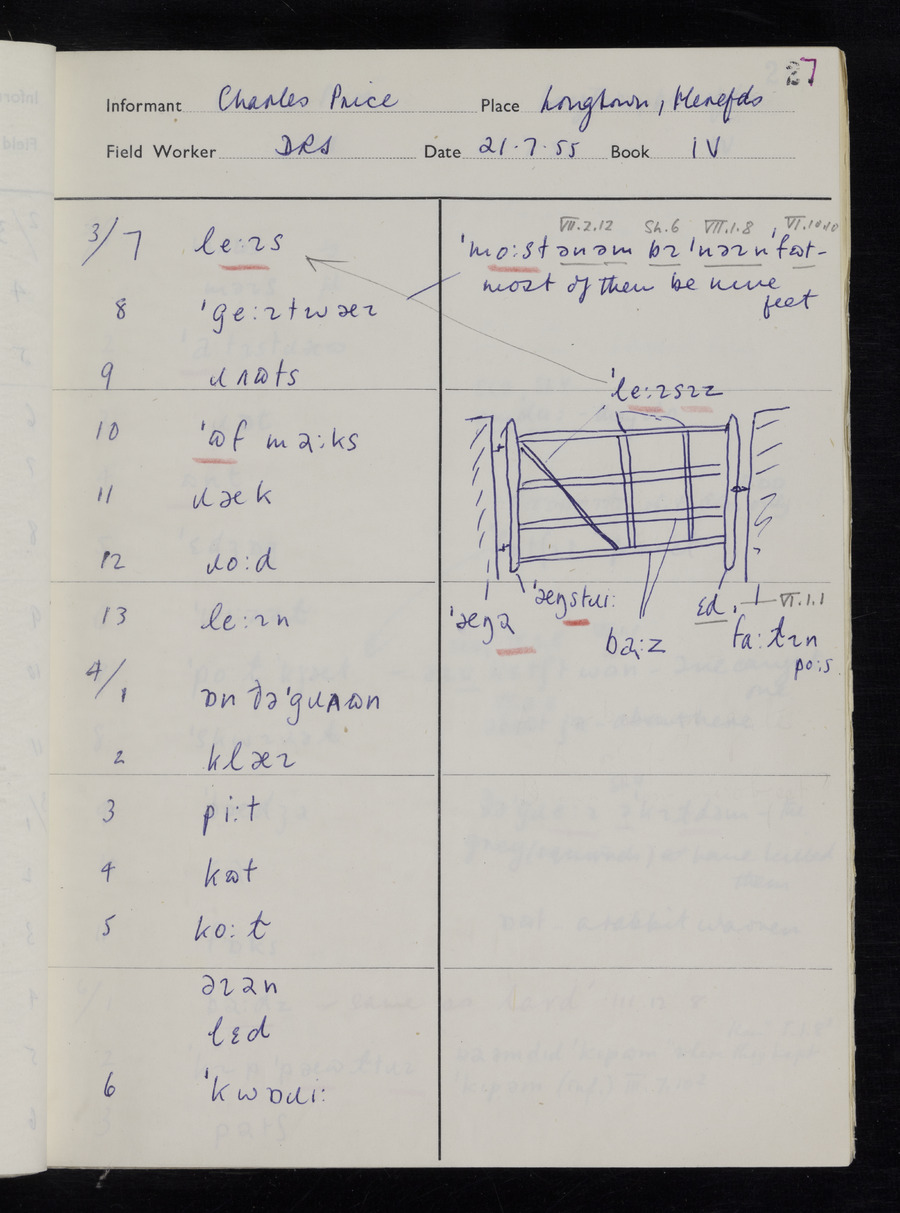 27
Informant Charles Price Place Longtown, Herefds
Field Worker DRS Date 21·7·55 Book IV
3/7 le:ɪs
8 'ge:ɪtwæɪ
9 ɹʌɷts
10 'ɷf mɑ:ks
11 ɹæk
12 ɹo:d
13 le:ɪn
4/1 ɒn ðə'gɹʌɷn
2 klæɪ
3 pi:t
4 kɷt
5 ko:t
əɪən
lɛd
6 'kwɒɹi:
VII.2.12 Sh.6 VII.1.8 VI.10.10
'mo:st ənəm bɪ 'nəɪn 'fɷt-
most of them be nine
feet
'le:ɪsɪz
'æŋə
'æŋstɹi:
bɑ:z
ɛd
VI.1.1
fa:ɫɪn
po:s